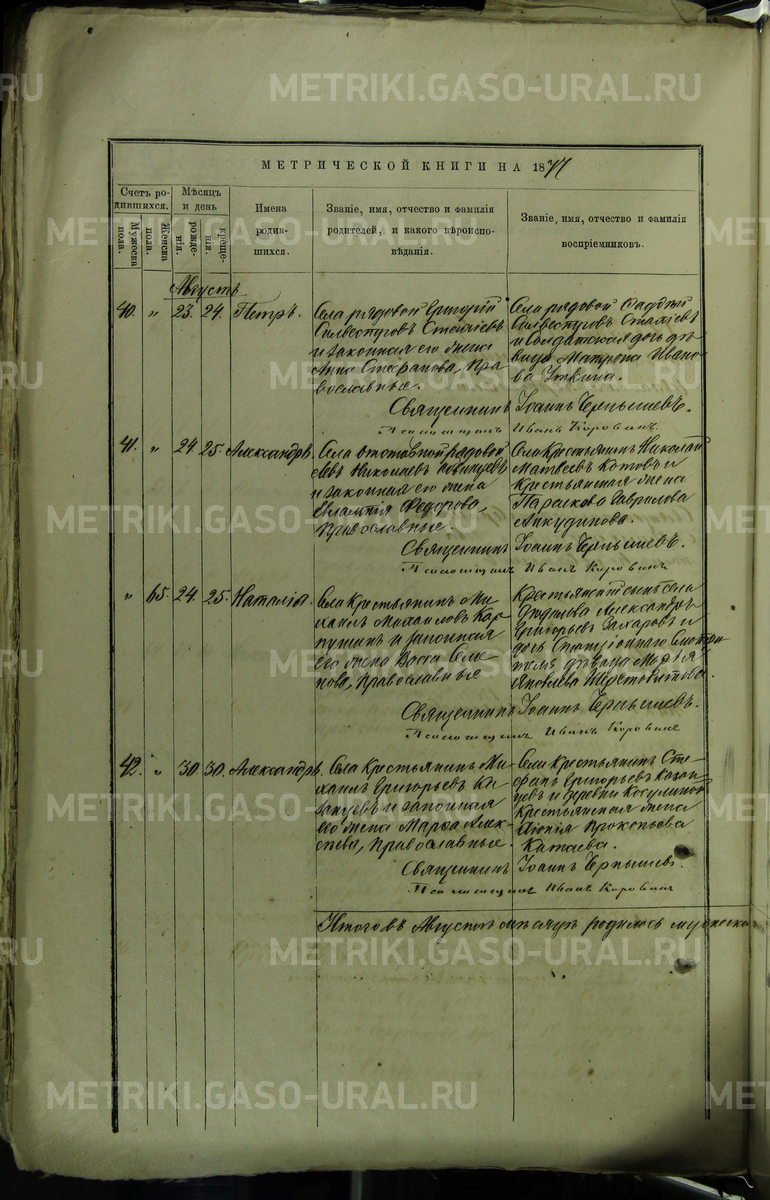 METRIKI.GASO-URAL.RU
МЕТРИЧЕСКОЙ КНИГИ НА 1877
Счетъ родившихся.
Мужеска пола.
Женска пола.
Мѣсяцъ и день
рожденія.
крещенія.
Имена родившихся.
Званіе, имя, отчество и фамилія родителей, и какого вѣроисповѣданія.
Званіе, имя, отчество и фамилія воспріемниковъ.
Августъ
40. " 23. 24. Петръ.
Села рядовой Григорій
Силвестровъ
и законная его жена
Анна Стефанова, Пра-
вославные.
Села рядовой
Силвестровъ
и Солдатская дочь дѣ-
вица Матрена Ивано-
ва Уткина.
Священникъ Іоаннъ Чернышевъ.
Псаломщикъ Иванъ Коровинъ
41. " 24. 25. Александръ.
Села отставной рядовой
Левъ Николаевъ
и законная его жена
Евлампія Федорова,
Православные.
Села Крестьянинъ Николай
Матвеевъ Котовъ и
Крестьянская жена
Параскева Гаврилова
Анкудинова.
Священникъ Іоаннъ Чернышевъ.
Псаломщикъ Иванъ Коровинъ
" 65. 24. 25. Наталія.
Села Крестьянинъ Ми-
хаилъ Михаиловъ Кар-
пушинъ и законная
его жена Васса Семе-
нова, Православные
Крестьянскій сынъ села
Александръ
Григорьевъ Захаровъ и
дочь Станціоннаго Смотри-
теля дѣвица Марія
Яковлева
Священникъ Іоаннъ Чернышевъ.
Псаломщикъ Иванъ Коровинъ
42. " 30. 30. Александръ.
Села Крестьянинъ Ми-
хаилъ Григорьевъ Ка-
занцевъ и законная
его жена Марѳа Алек-
сѣева, Православные.
Села Крестьянинъ Сте-
фанъ Григорьевъ Казан-
цевъ и деревни Косулиной
Крестьянская жена
Прокопьева
Катаева.
Священникъ Іоаннъ Чернышевъ.
Псаломщикъ Иванъ Коровинъ
Итого въ Августѣ мѣсяцѣ родилось мужеска